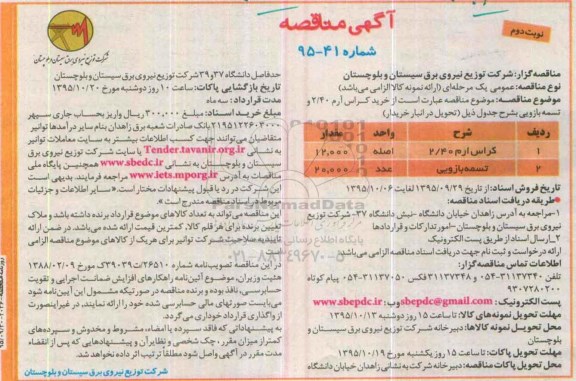 آگهی مناقصه
شماره ۴۱-۹۵
نوبت دوم
شرکت توزیع نیروی برق سیستان و بلوچستان
مناقصه گزار: شرکت توزیع نیروی برق سیستان و بلوچستان
نوع مناقصه: عمومی یک مرحله‌ای (ارائه نمونه کالا الزامی می‌باشد)
موضوع مناقصه: موضوع مناقصه عبارت است از خرید کراس آرم ۲/۴۰ و
تسمه بازویی بشرح جدول ذیل (تحویل در انبار خریدار)
ردیف شرح واحد مقدار
۱ کراس آرم ۲/۴۰ اصله ۱۲,۰۰۰
۲ تسمه بازویی عدد ۲۰,۰۰۰
تاریخ فروش اسناد: از تاریخ ۱۳۹۵/۰۹/۲۹ لغایت ۱۳۹۵/۱۰/۰۶
طریقه دریافت اسناد مناقصه:
۱-مراجعه به آدرس زاهدان خیابان دانشگاه -نبش دانشگاه ۳۷- شرکت توزیع
نیروی برق سیستان و بلوچستان -امور تدارکات و قراردادها
۲_ارسال اسناد از طریق پست الکترونیک
ارائه درخواست و ثبت نام جهت دریافت اسناد مناقصه الزامی می‌باشد.
اطلاعات تماس مناقصه گزار:
تلفن ۳۱۱۳۷۳۴۰-۰۵۴ و ۳۱۱۳۷۳۴۸ فکس ۳۱۱۳۷۰۵۰-۰۵۴ پیام کوتاه
۹۳۰۷۳۸۰۲۰۰
پست الکترونیک: sbepdc@gmail.com وب: www.sbepdc.ir
مهلت تحویل نمونه های کالا: تا ساعت ۱۵ روز دوشنبه ۱۳۹۵/۱۰/۱۳
محل تحویل نمونه کالاها: دبیرخانه شرکت توزیع نیروی برق سیستان و
بلوچستان
مهلت تحویل پاکات: تا ساعت ۱۵ روز یکشنبه مورخ ۱۳۹۵/۱۰/۱۹
محل تحویل پاکات مناقصه: دبیرخانه شرکت به نشانی زاهدان خیابان دانشگاه
حدفاصل دانشگاه ۳۷ و ۳۹ شرکت توزیع نیروی برق سیستان و بلوچستان
تاریخ بازگشایی پاکات: ساعت ۱۰ روز دوشنبه مورخ ۱۳۹۵/۱۰/۲۰
مدت قرارداد: سه ماه
مبلغ خرید اسناد: مبلغ ۳۰۰,۰۰۰ ریال واریز بحساب جاری سپهر
۲۱۹۵۱۲۲۶۰۳۰۰۰ بانک صادرات شعبه برق زاهدان بنام سایر درآمدها توانیر
متقاضیان می‌توانند جهت کسب اطلاعات بیشتر به سایت معاملات توانیر
به نشانی Tender.tavanir.org.ir یا سایت شرکت توزیع نیروی برق
سیستان و بلوچستان به نشانی www.sbedc.ir همچنین پایگاه ملی
مناقصات به آدرس www.iets.mporg.ir مراجعه فرمایند. بدیهی است
این شرکت در رد یا قبول پیشنهادات مختار است. «سایر اطلاعات و جزئیات
مربوطه در اسناد مناقصه مندرج است»
این مناقصه می‌تواند به تعداد کالاهای موضوع قرارداد برنده داشته باشد و ملاک
تعیین برنده برای هر قلم کالا، کمترین قیمت ارائه شده می‌باشد. در ضمن ارائه
تاییدیه صلاحیت شرکت توانیر برای هریک از کالاهای موضوع مناقصه الزامی
است.
در این مناقصه تصویب‌نامه شماره ۲۶۵۱۰/ت۳۹۰۳۹ک مورخ ۱۳۸۸/۰۲/۰۹
هئیت وزیران، موضوع آئین‌نامه راهکارهای افزایش ضمانت اجرایی و تقویت
حسابرسی، نافذ بوده و برنده مناقصه در صورتیکه مشمول این آیین‌نامه شود
می‌بایست صورتهای مالی حسابرسی شده خود را ارائه نمایند، در غیر اینصورت
از واگذاری قرارداد خودداری می‌گردد.
به پیشنهاداتی که فاقد سپرده یا امضاء، مشروط و مخدوش و سپرده‌های
کمتر از میزان مقرر، چک شخصی و نظایر آن و پیشنهادهایی که پس از انقضاء
مدت مقرر در آگهی واصل شود مطلقاً ترتیب اثر داده نخواهد شد.
شرکت توزیع نیروی برق سیستان و بلوچستان